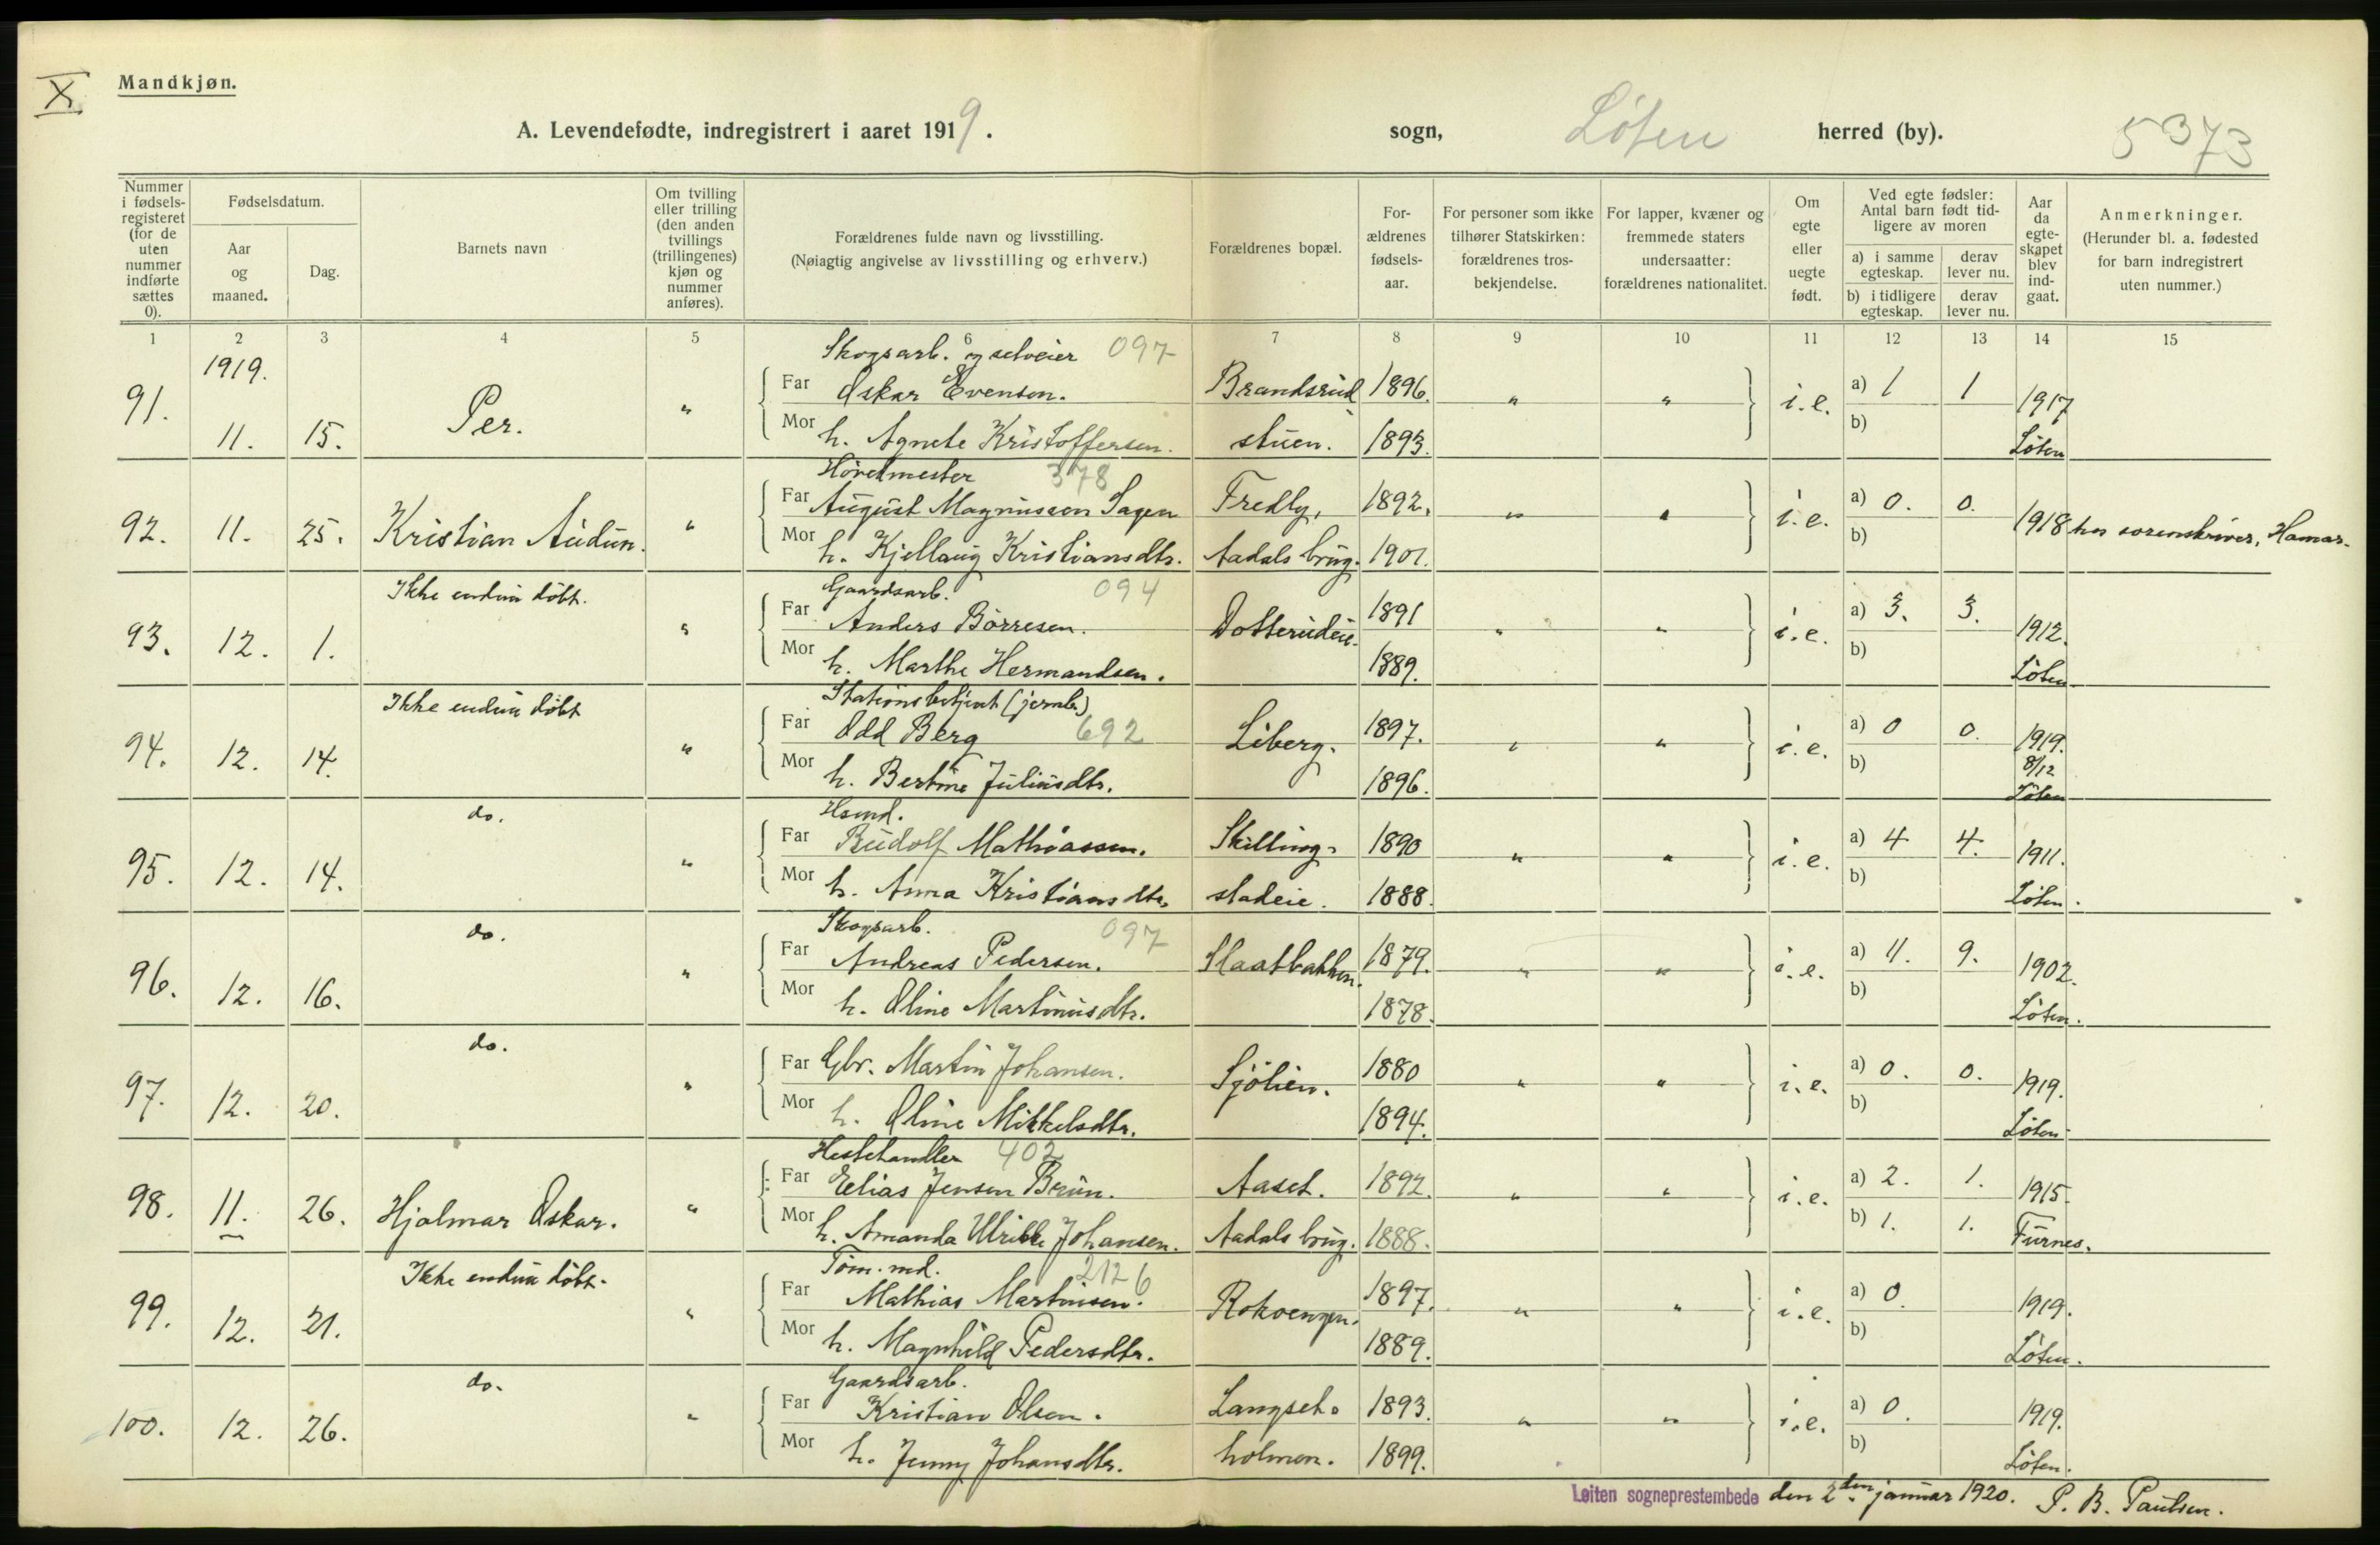 X
Mandkjøn.
A. Levendefødte, indregistrert i aaret 1919.
sogn, Löten herred (by).
5373
Nummer i fødselsregisteret (for de uten nummer indførte sættes 0).
Fødselsdatum.
Aar og maaned.
Dag.
Barnets navn
Om tvilling eller trilling (den anden tvillings (trillingenes) kjøn og nummer anføres).
Forældrenes fulde navn og livsstilling.
(Nøiagtig angivelse av livsstilling og erhverv.)
Forældrenes bopæl.
Forældrenes fødselsaar.
For personer som ikke tilhører Statskirken: forældrenes trosbekjendelse.
For lapper, kvæner og fremmede staters undersaatter: forældrenes nationalitet.
Om egte eller uegte født.
Ved egte fødsler: Antal barn født tidligere av moren
a) i samme egteskap.
derav lever nu.
b) i tidligere egteskap.
derav lever nu.
Aar da egteskapet blev indgaat.
Anmerkninger.
(Herunder bl. a. fødested for barn indregistrert uten nummer.)
1 2 3 4 5 6 7 8 9 10 11 12 13 14 15
1919.
Skogsarb. og selveier 097
91. 11. 15. Per. " Far Oskar Evensen. Brandsrud 1896. " " i.e. a) 1 1 1917
Mor h. Agnete Kristoffersen. stuen. 1893. b) Löten
Hovedmester 378
92. 11. 25. Kristian Audun. " Far August Magnussen Sagen Fredly, 1892. " " i.e. a) 0. 0. 1918 hos sorenskriver, Hamar.
Mor h. Kjellaug Kristiansdtr. Aadals brug. 1901. b)
Ikke endnu döbt. Gaardsarb. 094
93. 12. 1. " Far Anders Börresen. Dotterudeie. 1891 " " i.e. a) 3. 3. 1912.
Mor h. Marthe Hermandsen. 1889. b) Löten
Ikke endnu döbt Stationsbetjent (jernb.)
94. 12. 14. " Far Odd Berg 692 Liberg. 1897. " " i.e. a) 0 0. 1919.
8/12
Mor h. Bertine Juliusdtr. 1896. b) Löten
do. Hsmd.
95. 12. 14. " Far Rudolf Mathiassen. Skilling- 1890 " " i.e. a) 4 4. 1911.
Mor h. Anna Kristiansdtr. stadeie. 1888. b) Löten.
do. Skogsarb. 097
96. 12. 16. " Far Andreas Pedersen. Slaatbakken. 1879. " " i.e. a) 11. 9. 1902.
Mor h. Oline Martinusdtr. 1878. b) Löten.
do.
97. 12. 20. " Far Gbr. Martin Johansen. Sjölien. 1880 " " i.e. a) 0. 0. 1919.
Mor h. Oline Mikkelsdtr. 1894. b) Löten.
Hestehandler 402
98. 11. 26. Hjalmar Oskar. " Far Elias Jensen Brun. Aaset. 1892. " " i.e. a) 2. 1. 1915.
Mor h. Amanda Ulrikke Johansen. Aadals brug. 1888. b) 1. 1. Furnes.
Ikke endnu döbt. Töm.md. 2126
99. 12. 21. " Far Mathias Martinsen. Rokvengen. 1897. " " i.e. a) 0. 1919.
Mor h. Magnhild Pedersdtr. 1889. b) Löten.
do. Gaardsarb.
100. 12. 26. " Far Kristian Olsen. Langset- 1893. " " i.e. a) 0. 1919.
Mor h. Jenny Johansdtr. holmen. 1899. b) Löten.
Løiten sogneprestembede den 2den januar 1920. P. B. Paulsen.